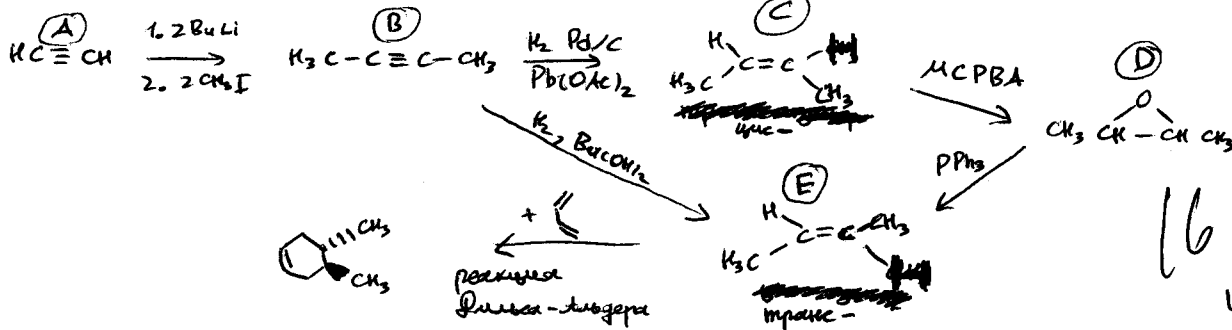 A
HC≡CH
1. 2BuLi
2. 2CH₃I
B
H₃C-C≡C-CH₃
H₂ Pd/C
Pb(OAc)₂
C
H
H₃C
C=C
CH₃
цис-
MCPBA
D
O
CH₃CH-CHCH₃
PPh₃
H₂,
E
H
H₃C
C=C
CH₃
транс-
+
реакция
Дильса-Альдера
CH₃
CH₃
16